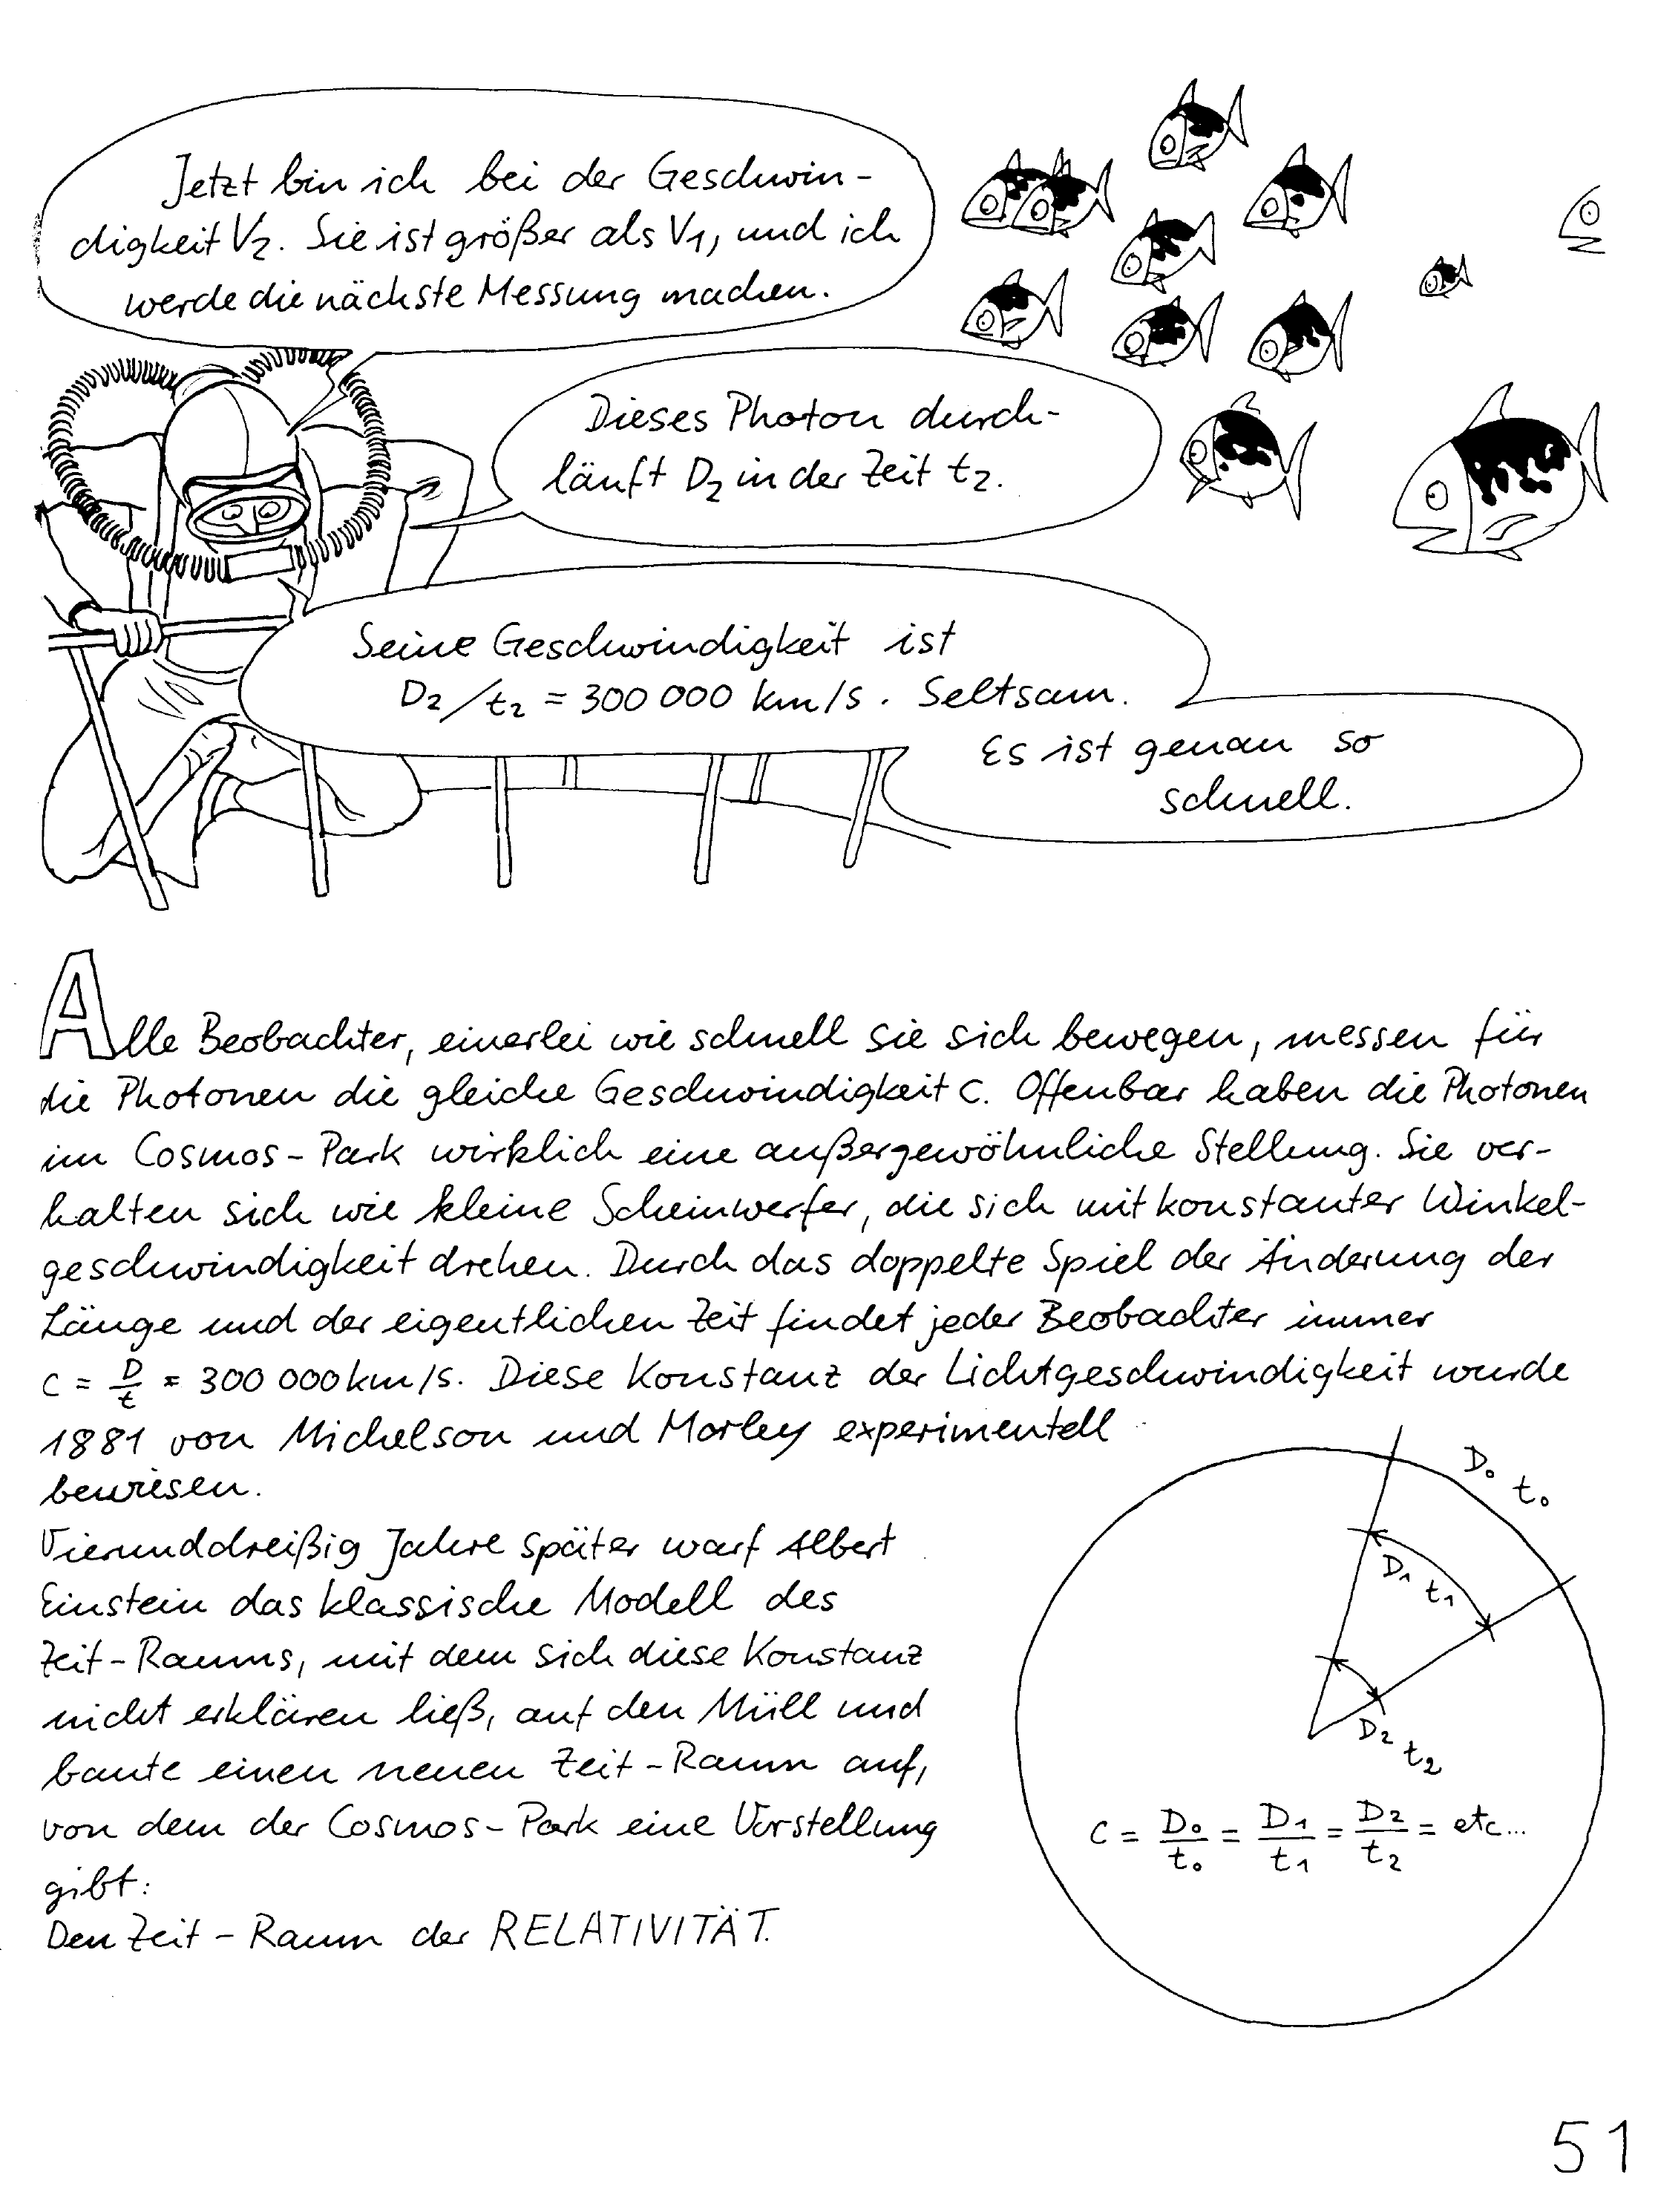 Jetzt bin ich bei der Geschwin-
digkeit V₂. Sie ist größer als V₁, und ich
werde die nächste Messung machen.
Dieses Photon durch-
läuft D₂ in der Zeit t₂.
Seine Geschwindigkeit ist
D₂/t₂ = 300 000 km/s. Seltsam.
Es ist genau so
schnell.
Alle Beobachter, einerlei wie schnell sie sich bewegen, messen für
die Photonen die gleiche Geschwindigkeit c. Offenbar haben die Photonen
im Cosmos-Park wirklich eine außergewöhnliche Stellung. Sie ver-
halten sich wie kleine Scheinwerfer, die sich mit konstanter Winkel-
geschwindigkeit drehen. Durch das doppelte Spiel der Änderung der
Länge und der eigentlichen Zeit findet jeder Beobachter immer
c = D/t = 300 000 km/s. Diese Konstanz der Lichtgeschwindigkeit wurde
1881 von Michelson und Morley experimentell
bewiesen.
Vierunddreißig Jahre später warf Albert
Einstein das klassische Modell des
Zeit-Raums, mit dem sich diese Konstanz
nicht erklären ließ, auf den Müll und
baute einen neuen Zeit-Raum auf,
von dem der Cosmos-Park eine Vorstellung
gibt:
Den Zeit-Raum der RELATIVITÄT.
D₀ t₀
D₁ t₁
D₂ t₂
c = D₀/t₀ = D₁/t₁ = D₂/t₂ = etc...
51